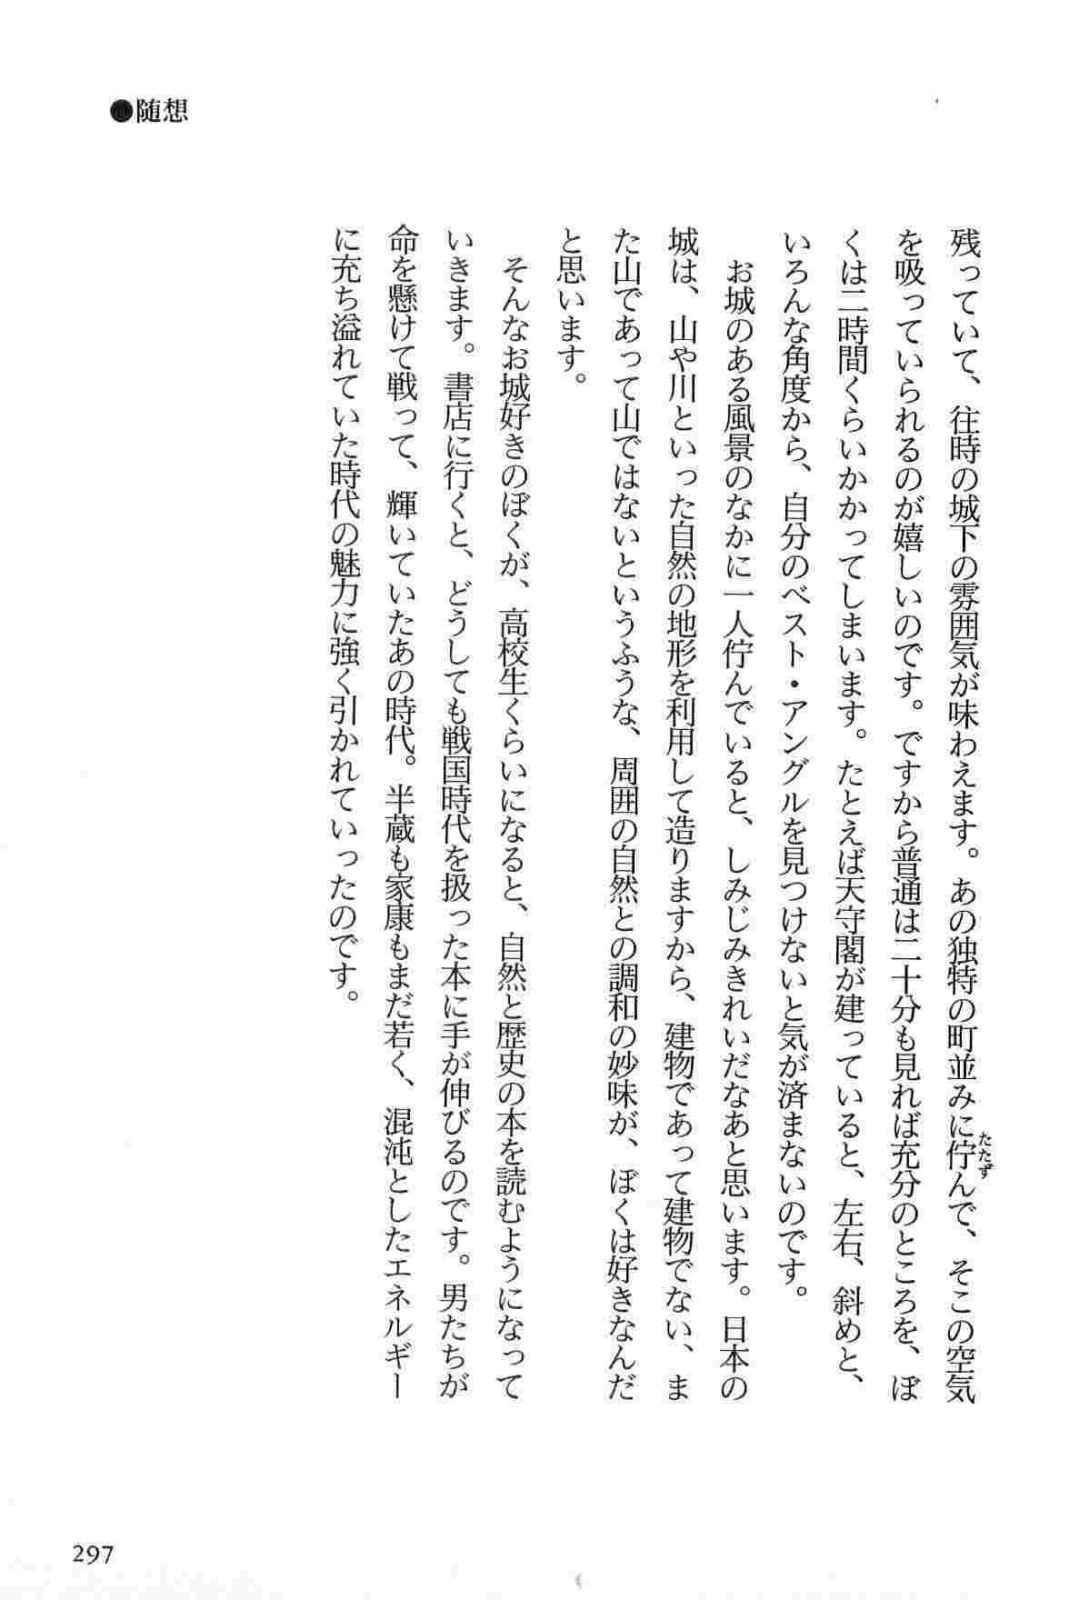 ●随想
残っていて、往時の城下の雰囲気が味わえます。あの独特の町並みに佇んで、そこの空気
たたず
を吸っていられるのが嬉しいのです。ですから普通は二十分も見れば充分のところを、ぼ
くは二時間くらいかかってしまいます。たとえば天守閣が建っていると、左右、斜めと、
いろんな角度から、自分のベスト・アングルを見つけないと気が済まないのです。
お城のある風景のなかに一人佇んでいると、しみじみきれいだなあと思います。日本の
城は、山や川といった自然の地形を利用して造りますから、建物であって建物でない、ま
た山であって山ではないというふうな、周囲の自然との調和の妙味が、ぼくは好きなんだ
と思います。
そんなお城好きのぼくが、高校生くらいになると、自然と歴史の本を読むようになって
いきます。書店に行くと、どうしても戦国時代を扱った本に手が伸びるのです。男たちが
命を懸けて戦って、輝いていたあの時代。半蔵も家康もまだ若く、混沌としたエネルギー
に充ち溢れていた時代の魅力に強く引かれていったのです。
297